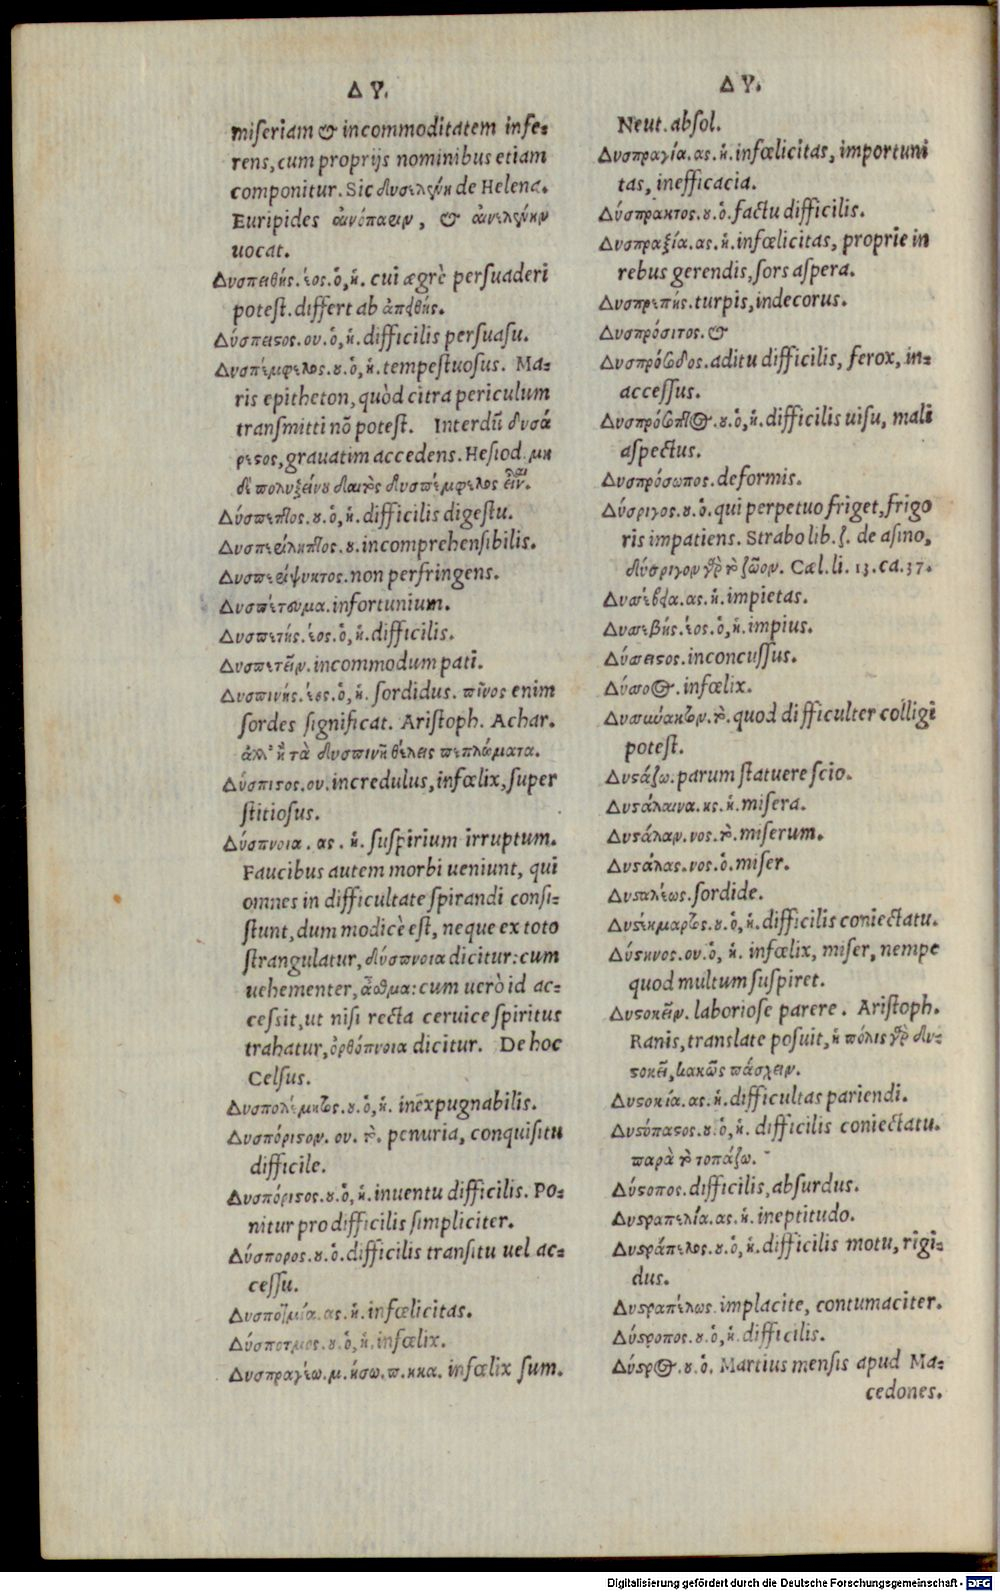 Δ Υ.
miſeriam & incommoditatem infe-
rens, cum proprijs nominibus etiam
componitur. Sic δυσελένη de Helena.
Euripides αἰνόπαριν, & αἰνελένην
uocat.
Δυσπειθής.έος.ὁ,ἡ. cui ægrè perſuaderi
poteſt. differt ab ἀπειθής.
Δύσπειστος.ου.ὁ,ἡ. difficilis perſuaſu.
Δυσπέμφελος.ου.ὁ,ἡ. tempeſtuoſus. Ma-
ris epitheton, quòd citra periculum
tranſmitti nõ poteſt. Interdũ δυσά
ρεστος, grauatim accedens. Heſiod. μη
δὲ πολυξείνου δαιτὸς δυσπέμφελος εἶναι.
Δύσπεπτος.ου.ὁ,ἡ. difficilis digeſtu.
Δυσπερίληπτος.ου. incomprehenſibilis.
Δυσπερίψυκτος. non perfringens.
Δυσπέτημα. infortunium.
Δυσπετής.έος.ὁ,ἡ. difficilis.
Δυσπετεῖν. incommodum pati.
Δυσπινής.έος.ὁ,ἡ. ſordidus. πῖνος enim
ſordes ſignificat. Ariſtoph. Achar.
ἀλλ' ἢ τὰ δυσπινῆ θέλεις πεπλώματα.
Δύσπιστος.ου. incredulus, infœlix, ſuper
ſtitioſus.
Δύσπνοια. ας. ἡ. ſuſpirium irruptum.
Faucibus autem morbi ueniunt, qui
omnes in difficultate ſpirandi conſi-
ſtunt, dum modicè eſt, neque ex toto
ſtrangulatur, δύσπνοια dicitur: cum
uehementer, ἆσθμα: cum uerò id ac-
ceſſit, ut niſi recta ceruice ſpiritus
trahatur, ὀρθόπνοια dicitur. De hoc
Celſus.
Δυσπολέμητος.ου.ὁ,ἡ. inexpugnabilis.
Δυσπόριστον. ου. τὸ. penuria, conquiſitu
difficile.
Δυσπόριστος.ου.ὁ,ἡ. inuentu difficilis. Po-
nitur pro difficilis ſimpliciter.
Δύσπορος.ου.ὁ. difficilis tranſitu uel ac-
ceſſu.
Δυσποτμία.ας.ἡ. infœlicitas.
Δύσποτμος.ου.ὁ,ἡ. infœlix.
Δυσπραγέω.μ.ήσω.π.ηκα. infœlix ſum.
Δ Υ.
Neut. abſol.
Δυσπραγία.ας.ἡ. infœlicitas, importuni
tas, inefficacia.
Δύσπρακτος.ου.ὁ. factu difficilis.
Δυσπραξία.ας.ἡ. infœlicitas, proprie in
rebus gerendis, ſors aſpera.
Δυσπρεπής. turpis, indecorus.
Δυσπρόσιτος. &
Δυσπρόσοδος. aditu difficilis, ferox, in-
acceſſus.
Δυσπρόσοπτος.ου.ὁ,ἡ. difficilis uiſu, mali
aſpectus.
Δυσπρόσωπος. deformis.
Δύσριγος.ου.ὁ. qui perpetuo friget, frigo
ris impatiens. Strabo lib. ζ. de aſino,
δύσριγον γὰρ τὸ ζῶον. Cæl. li. 13. ca. 37.
Δυσσέβεια.ας.ἡ. impietas.
Δυσσεβής.έος.ὁ,ἡ. impius.
Δύσσειστος. inconcuſſus.
Δύσσοος. infœlix.
Δυσσύνακτον.τὸ. quod difficulter colligi
poteſt.
Δυστάζω. parum ſtatuere ſcio.
Δυστάλαινα.ης.ἡ. miſera.
Δυστάλαν.νος.τὸ. miſerum.
Δυστάλας.νος.ὁ. miſer.
Δυσταλέως. ſordide.
Δυστέκμαρτος.ου.ὁ,ἡ. difficilis coniectatu.
Δύστηνος.ου.ὁ, ἡ. infœlix, miſer, nempe
quod multum ſuſpiret.
Δυστοκεῖν. laborioſe parere. Ariſtoph.
Ranis, translate poſuit, ἡ πόλις γὰρ δυ-
στοκεῖ, κακῶς πάσχειν.
Δυστοκία.ας.ἡ. difficultas pariendi.
Δυστόπαστος.ου.ὁ,ἡ. difficilis coniectatu.
παρὰ τὸ τοπάζω.
Δύστοπος. difficilis, abſurdus.
Δυστραπελία.ας.ἡ. ineptitudo.
Δυστράπελος.ου.ὁ,ἡ. difficilis motu, rigi-
dus.
Δυστραπέλως. implacite, contumaciter.
Δύστροπος.ου.ὁ,ἡ. difficilis.
Δύστρος.ου.ὁ. Martius menſis apud Ma-
cedones.
Digitalisierung gefördert durch die Deutsche Forschungsgemeinschaft - DFG